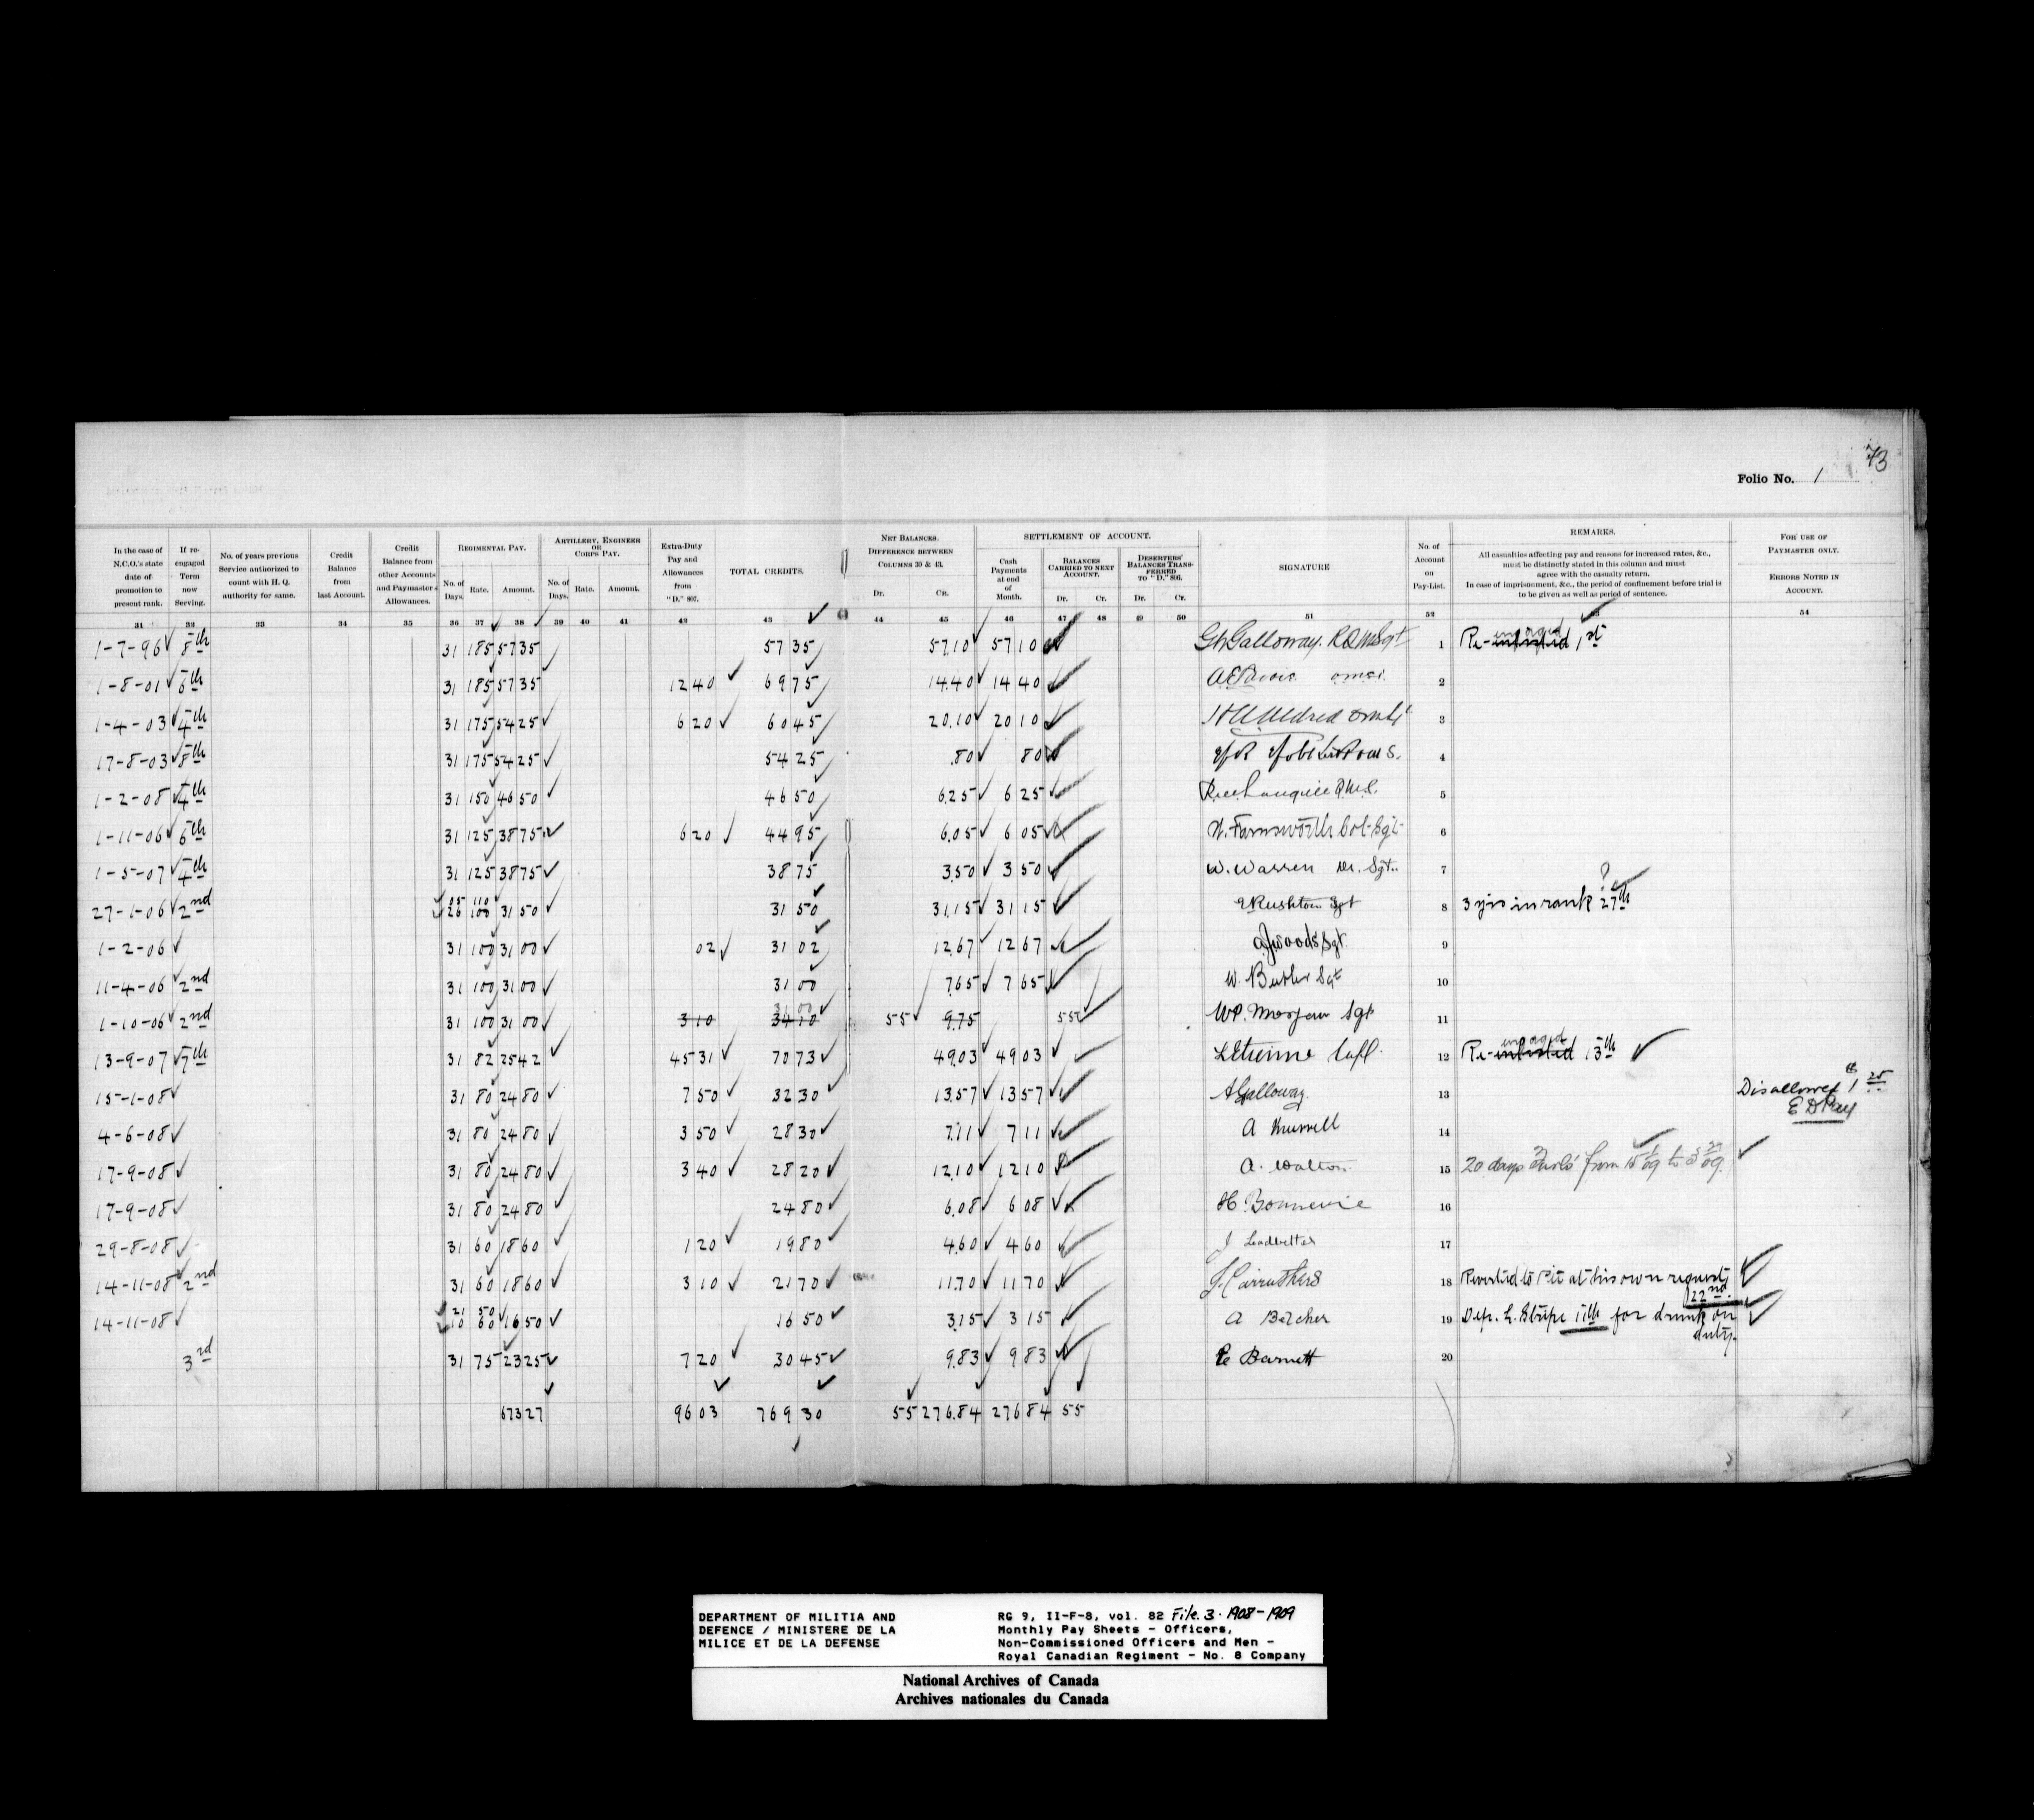 73
Folio No. 1
In the case of N.C.O.'s state date of promotion to present rank.
If re-engaged Term now Serving.
No. of years previous Service authorized to count with H. Q. authority for same.
Credit Balance from last Account.
Credit Balance from other Accounts and Paymaster's Allowances.
REGIMENTAL PAY.
No. of Days. Rate. Amount.
ARTILLERY, ENGINEER OR CORPS PAY.
No. of Days. Rate. Amount.
Extra-Duty Pay and Allowances from "D." 807.
TOTAL CREDITS.
NET BALANCES.
DIFFERENCE BETWEEN COLUMNS 30 & 43.
Dr. Cr.
SETTLEMENT OF ACCOUNT.
Cash Payments at end of Month.
BALANCES CARRIED TO NEXT ACCOUNT.
Dr. Cr.
DESERTERS' BALANCES TRANSFERRED TO "D." 806.
Dr. Cr.
SIGNATURE
No. of Account on Pay-List.
REMARKS.
All casualties affecting pay and reasons for increased rates, &c., must be distinctly stated in this column and must agree with the casualty return.
In case of imprisonment, &c., the period of confinement before trial is to be given as well as period of sentence.
FOR USE OF PAYMASTER ONLY.
ERRORS NOTED IN ACCOUNT.
31 32 33 34 35 36 37 38 39 40 41 42 43 44 45 46 47 48 49 50 51 52 54
1-7-96 8th 31 185 5735 5735 57.10 5710 Galloway. RQMSgt 1 Re-engaged 1st
1-8-01 6th 31 185 5735 1240 6975 14.40 1440 2
1-4-03 4th 31 175 5425 620 6045 20.10 2010 3
17-8-03 8th 31 175 5425 5425 .80 80 4
1-2-08 4th 31 150 4650 4650 6.25 625 5
1-11-06 6th 31 125 3875 620 4495 6.05 605 Farnsworth Col-Sgt 6
1-5-07 4th 31 125 3875 3875 3.50 350 W. Warren Dr. Sgt. 7
27-1-06 2nd 05 110 26 100 3150 3150 31.15 3115 Rushton Sgt 8 3 yrs in rank 27th
1-2-06 31 100 3100 02 3102 12.67 1267 Woods Sgt 9
11-4-06 2nd 31 100 3100 3100 7.65 765 W. Butler Sgt 10
1-10-06 2nd 31 100 3100 310 3410 3100 55 9.75 55 W.P. Morgan Sgt 11
13-9-07 7th 31 82 2542 4531 7073 49.03 4903 Etienne 12 Re-engaged 13th
15-1-08 31 80 2480 750 3230 13.57 1357 A Galloway 13 Disallowed $1 25 E D Pay
4-6-08 31 80 2480 350 2830 7.11 711 14
17-9-08 31 80 2480 340 2820 12.10 1210 A. Walton 15 20 days from to
17-9-08 31 80 2480 2480 6.08 608 H. Bonnevie 16
29-8-08 31 60 1860 120 1980 4.60 460 J Leadbetter 17
14-11-08 2nd 31 60 1860 310 2170 11.70 1170 Carruthers 18 Reverted to Pte at his own request, 22nd.
14-11-08 21 50 10 60 1650 1650 3.15 315 A Belcher 19 Dep. L. Stripe 11th for drunk on duty.
3rd 31 75 2325 720 3045 9.83 983 Barnett 20
67327 9603 76930 55 276.84 27684 55
DEPARTMENT OF MILITIA AND
DEFENCE / MINISTERE DE LA
MILICE ET DE LA DEFENSE
RG 9, II-F-8, vol. 82 File. 3. 1908-1909
Monthly Pay Sheets - Officers,
Non-Commissioned Officers and Men -
Royal Canadian Regiment - No. 8 Company
National Archives of Canada
Archives nationales du Canada